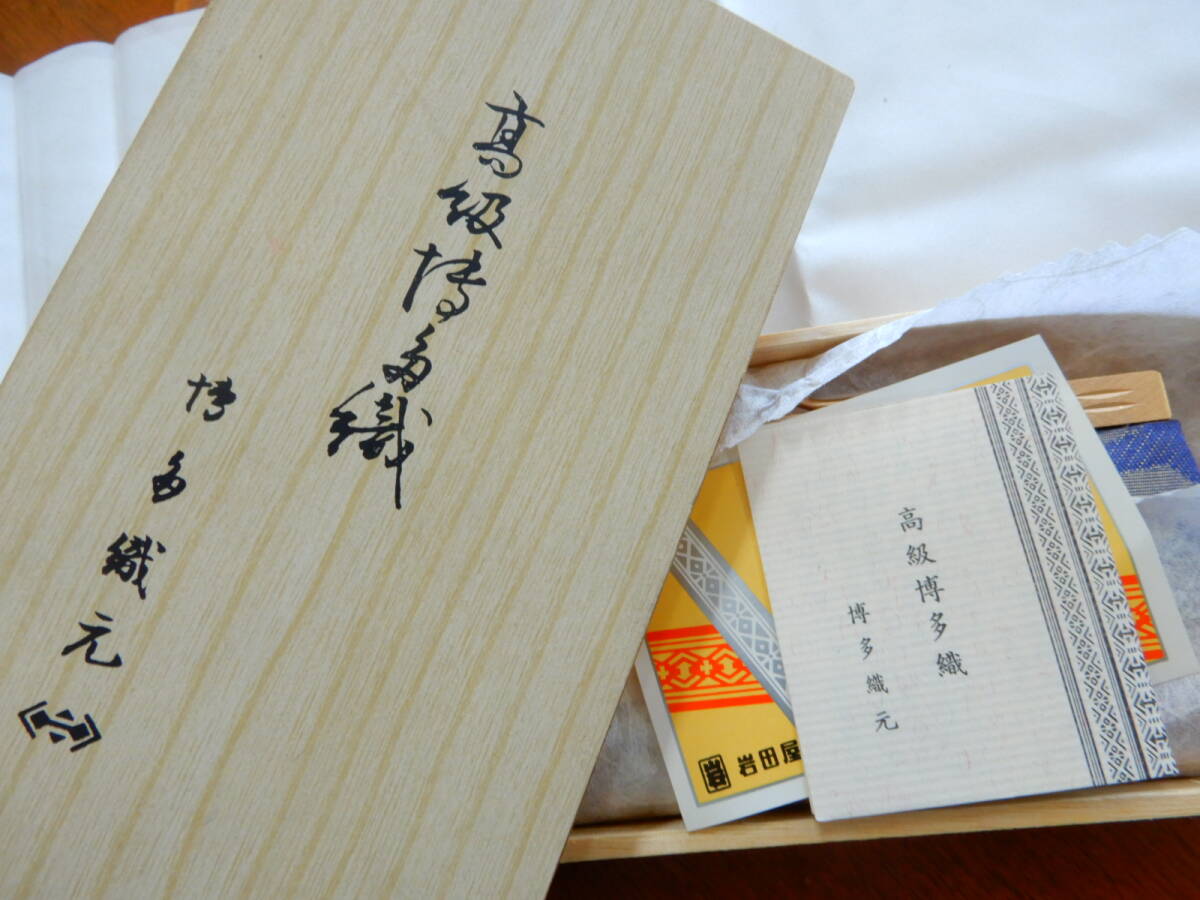 高級博多織
博多織元
高級博多織
博多織元
岩田屋